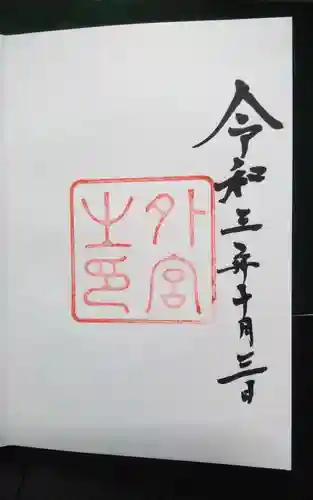 令和三年十月三日
外宮
之印